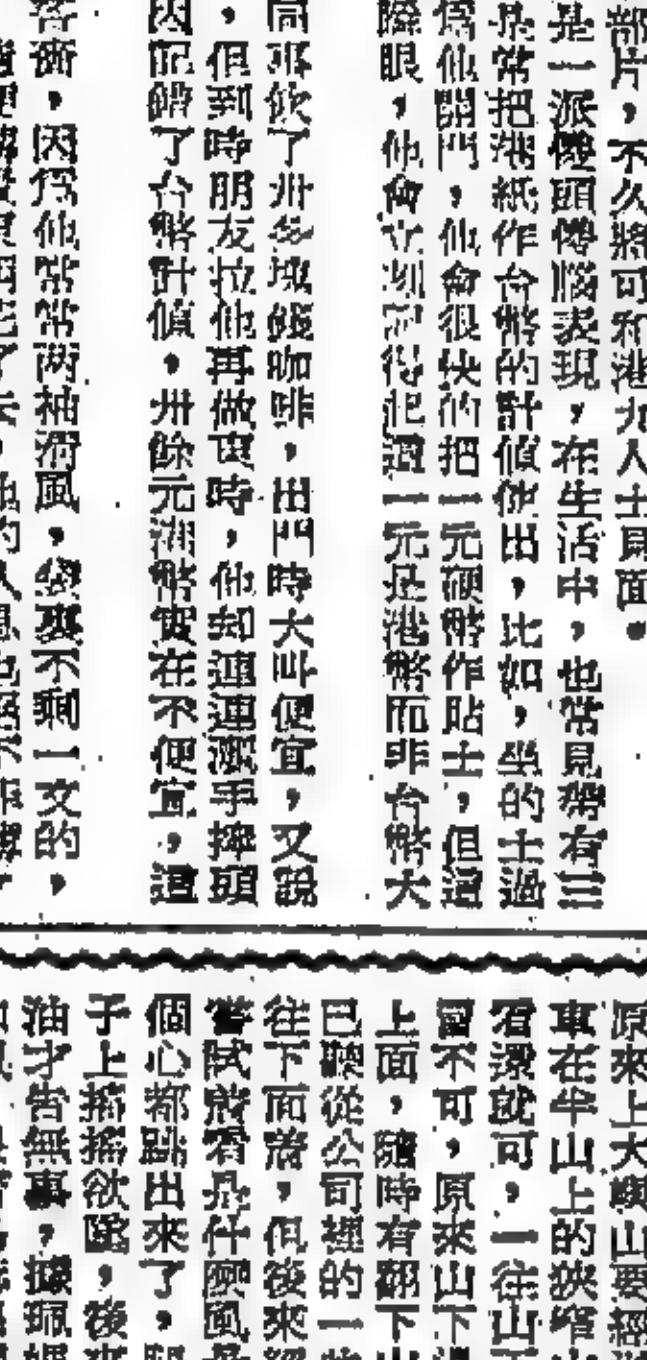 部片，不久將可和港九人士見面。
是一派儍頭儍腦表現，在生活中，也常見帶有三
是常把港紙作台幣的計值使出，比如，坐的士過
爲他開門，他會很快的把一元硬幣作貼士，但這
眼，他會立刻記得起這一元是港幣而非台幣大
飲了卅多塊錢咖啡，出門時大叫便宜，又說
，但到時朋友拉他再做東時，他却連連擺手擰頭
因記錯了台幣計值，卅餘元港幣實在不便宜，這
因爲他常常兩袖淸風，袋裏不剩一文的，
原來上大嶼山要經
車在半山上的狹窄山
看還就可，一往山下
不可，原來山下
上面，隨時有翻下山
已聽從公司裡的一
往下面望，但後來
嘗試看是什麼風
個心都跳出來了，
子上搖搖欲墜，後來
油才告無事，據珮